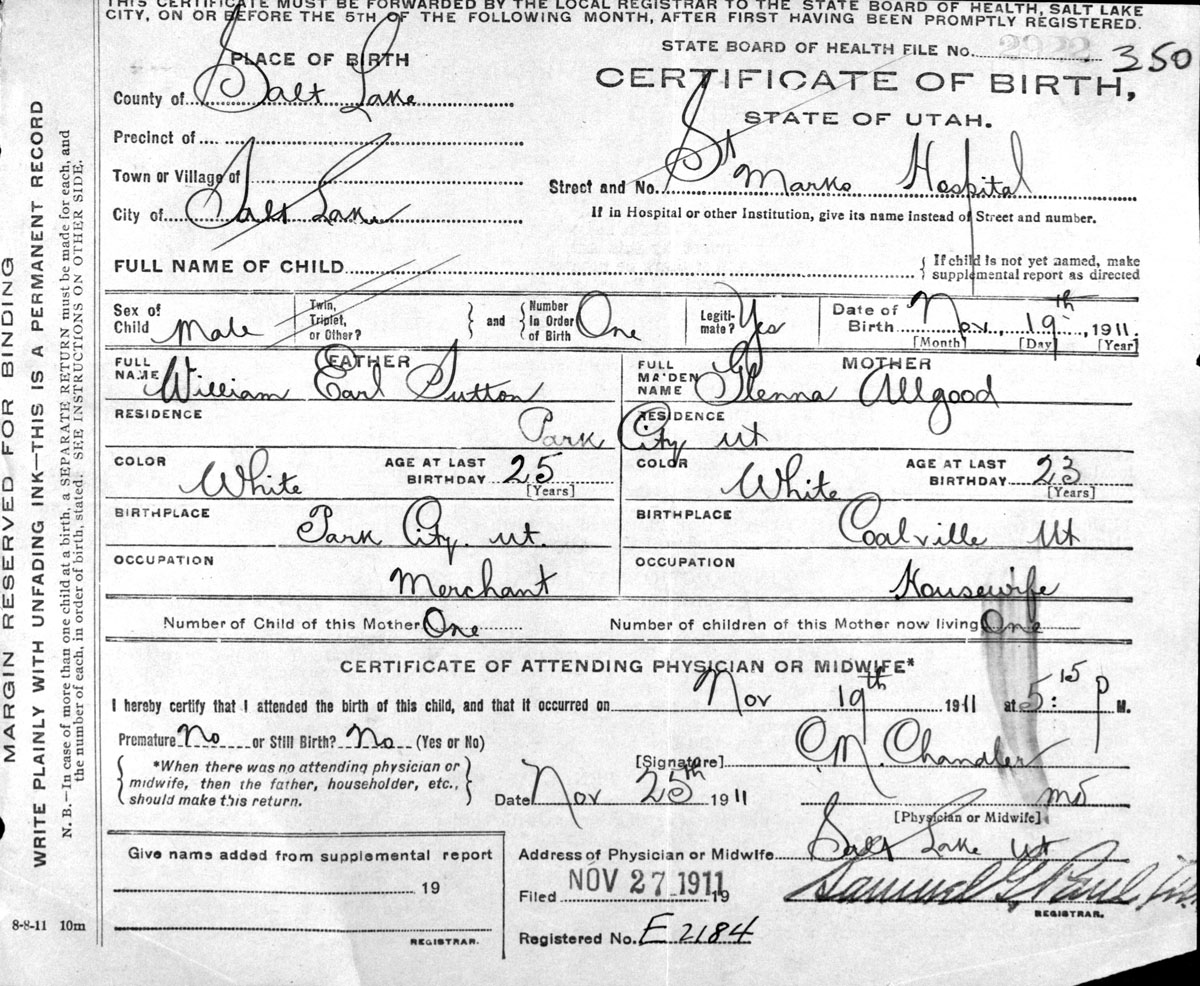 THIS CERTIFICATE MUST BE FORWARDED BY THE LOCAL REGISTRAR TO THE STATE BOARD OF HEALTH, SALT LAKE
CITY, ON OR BEFORE THE 5TH OF THE FOLLOWING MONTH, AFTER FIRST HAVING BEEN PROMPTLY REGISTERED.
STATE BOARD OF HEALTH FILE No. 2922 350
PLACE OF BIRTH
CERTIFICATE OF BIRTH,
County of Salt Lake
STATE OF UTAH.
Precinct of
Town or Village of
Street and No. St Marks Hospital
City of Salt Lake
If in Hospital or other Institution, give its name instead of Street and number.
FULL NAME OF CHILD
{ If child is not yet named, make
supplemental report as directed
Sex of Child Male
Twin, Triplet, or Other? } and { Number In Order of Birth One
Legiti-mate? Yes
Date of Birth Nov. 19th, 1911.
[Month] [Day] [Year]
FATHER
FULL NAME William Earl Sutton
MOTHER
FULL MAIDEN NAME Glenna Allgood
RESIDENCE RESIDENCE
Park City Ut
COLOR White AGE AT LAST BIRTHDAY 25 [Years]
COLOR White AGE AT LAST BIRTHDAY 23 [Years]
BIRTHPLACE Park City. Ut.
BIRTHPLACE Coalville Ut
OCCUPATION Merchant
OCCUPATION Housewife
Number of Child of this Mother One
Number of children of this Mother now living One
CERTIFICATE OF ATTENDING PHYSICIAN OR MIDWIFE*
I hereby certify that I attended the birth of this child, and that it occurred on Nov 19th 1911 at 5:15 P M.
Premature No or Still Birth? No (Yes or No)
{ *When there was no attending physician or
midwife, then the father, householder, etc.,
should make this return. }
[Signature] C.M. Chandler
Date Nov 25th 1911
MD
[Physician or Midwife]
Give name added from supplemental report
19
REGISTRAR.
Address of Physician or Midwife Salt Lake Ut
Filed NOV 27 1911 19
Samuel G. Paul
REGISTRAR.
Registered No. E 2184
8-8-11 10m
MARGIN RESERVED FOR BINDING
WRITE PLAINLY WITH UNFADING INK—THIS IS A PERMANENT RECORD
N. B.—In case of more than one child at a birth, a SEPARATE RETURN must be made for each, and
the number of each, in order of birth, stated. SEE INSTRUCTIONS ON OTHER SIDE.